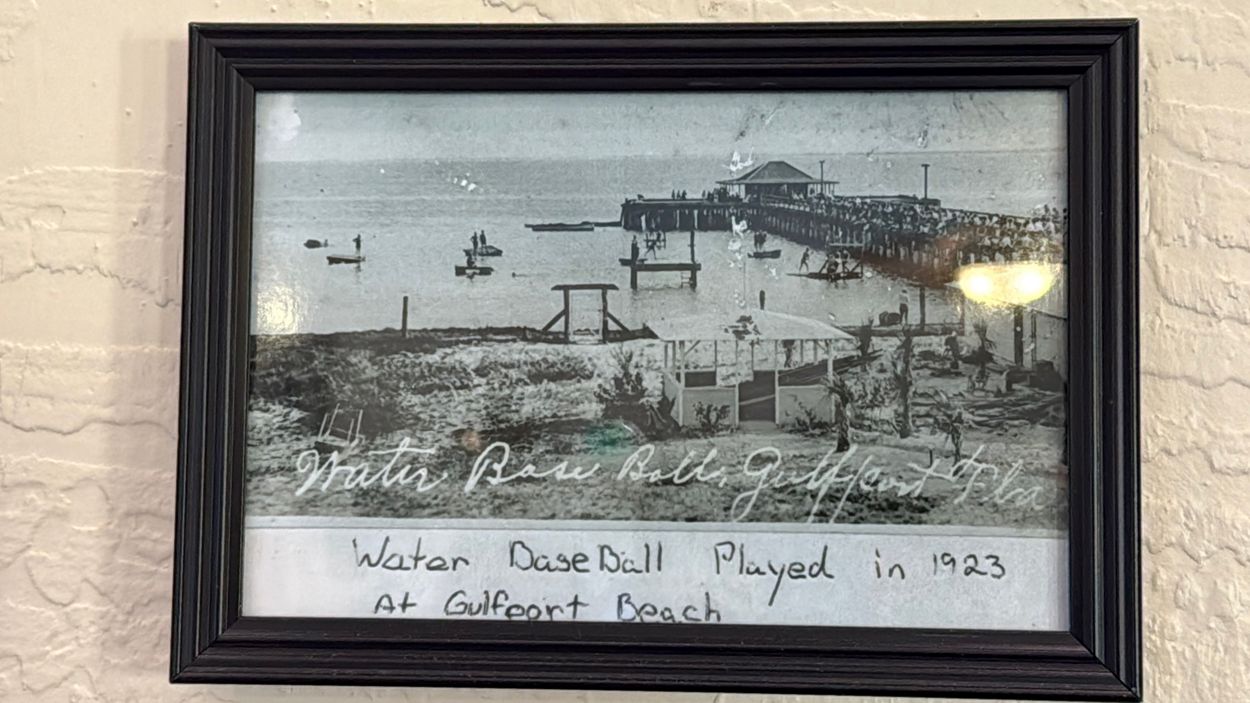 Water Base Ball, Gulfport Fla
Water BaseBall Played in 1923
At Gulfport Beach